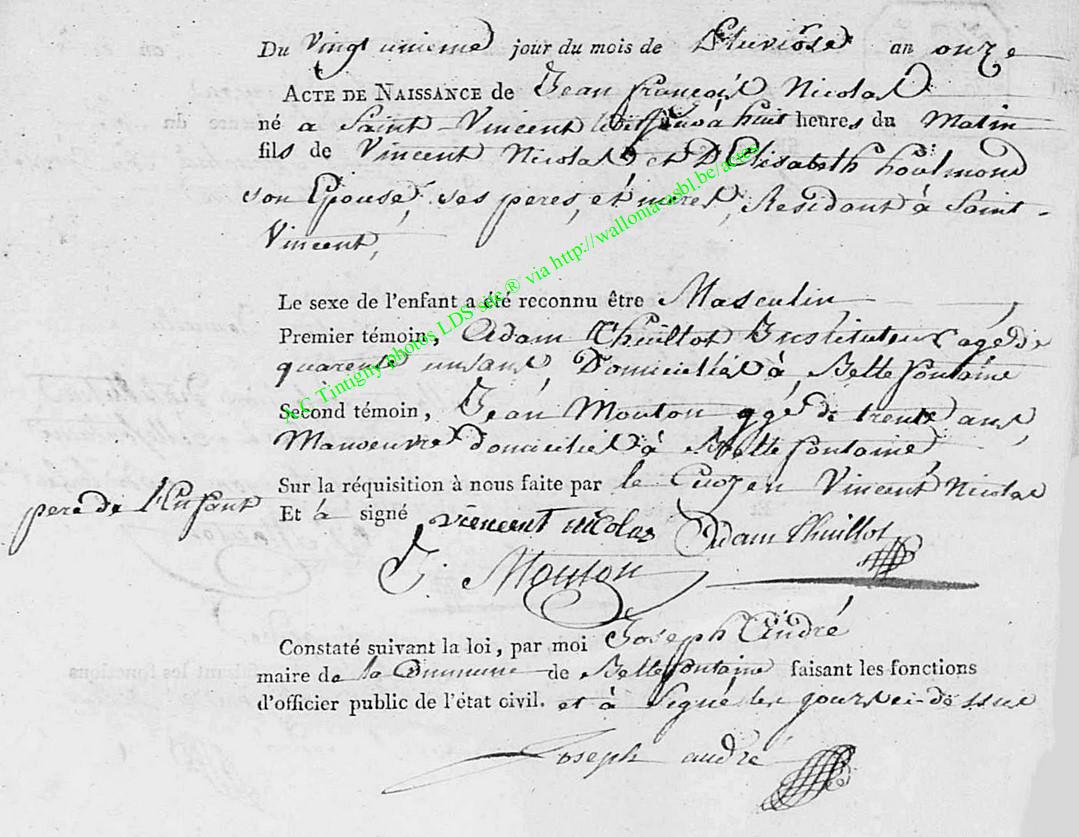 Du vingt unieme jour du mois de Pluviôse an onze
ACTE DE NAISSANCE de Jean françois Nicolas
né a Saint-Vincent à huit heures du Matin
fils de Vincent Nicolas et D'Elisabeth
son Epouse ses peres, et meres, Residant à Saint-
Vincent,
Le sexe de l'enfant a été reconnu être Masculin
Premier témoin, Adam Thuillot Instituteur agé de
quarente un ans Domicilies à Bellefontaine
Second témoin, Jean Mouton agé de trente ans,
Manoeuvre domicilies à Bellefontaine
Sur la réquisition à nous faite par le Citoyen Vincent Nicolas
pere de l'Enfant Et a signé vincent nicolas Adam thuillot
J. Mouton
Constaté suivant la loi, par moi Joseph André
maire de la Commune de Bellefontaine faisant les fonctions
d'officier public de l'état civil. et à Signé les jours ci-dessus
Joseph andré
A.C Tintigny photos LDS slc.® via http://wallonia-asbl.be/actes